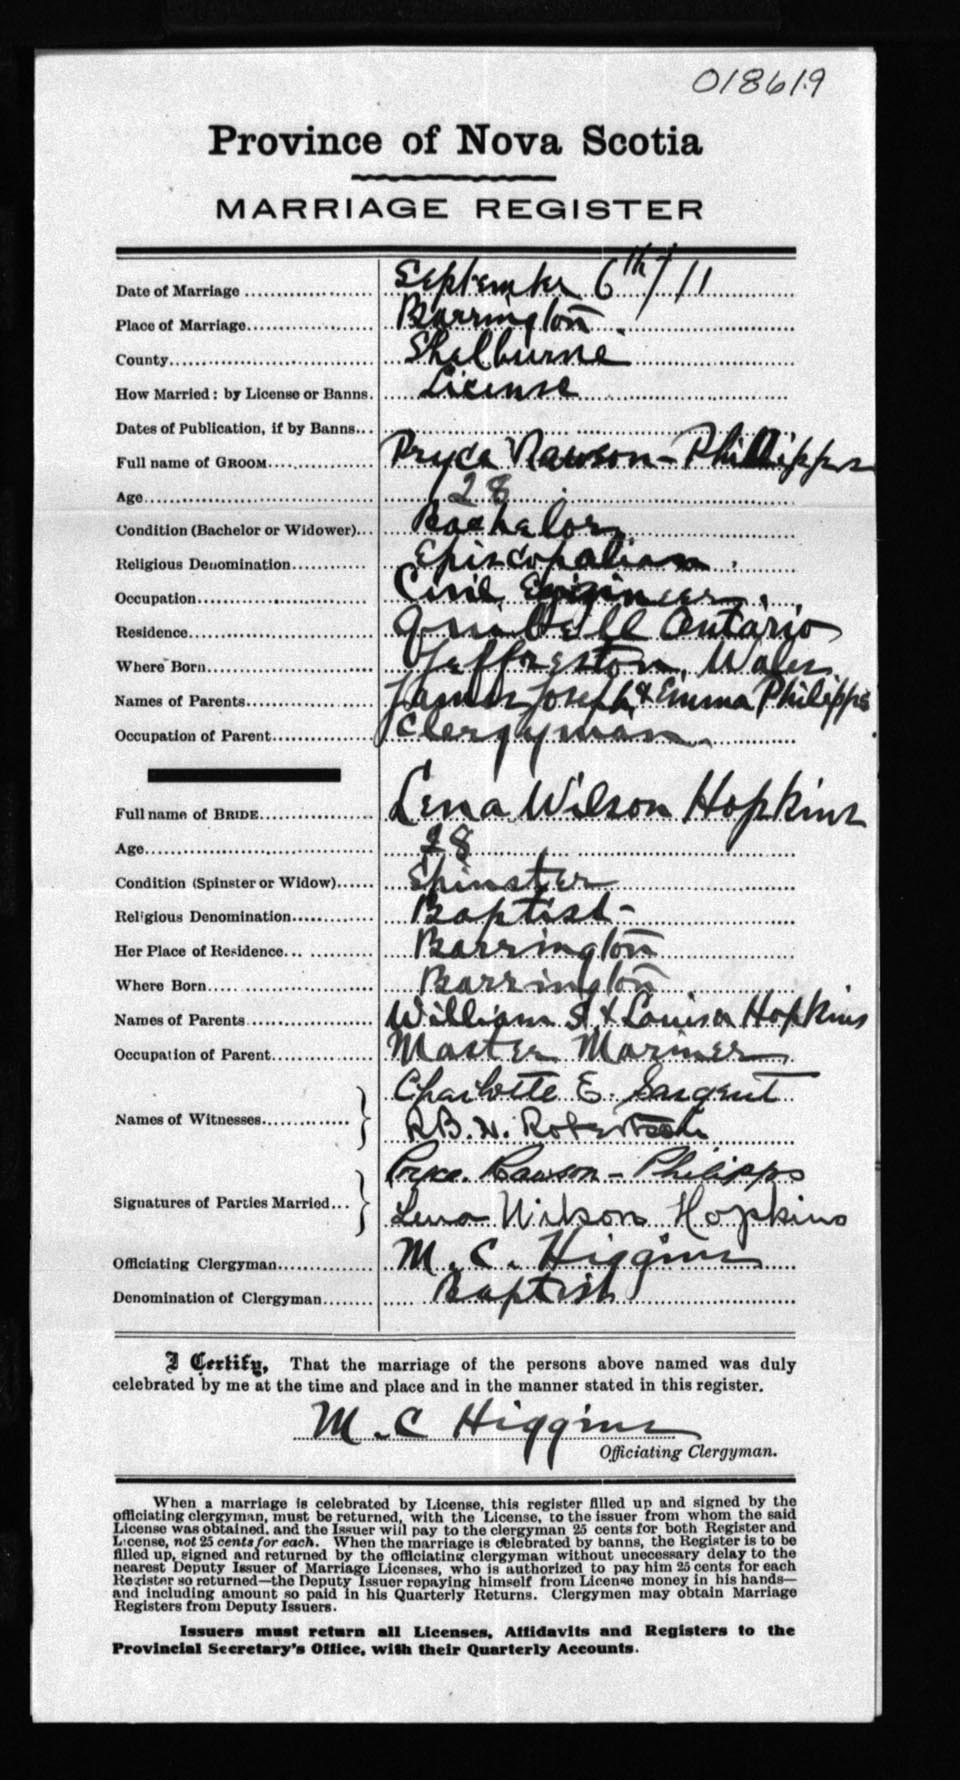 018619
Province of Nova Scotia
MARRIAGE REGISTER
Date of Marriage ................... September 6th/11
Place of Marriage................... Barrington
County................... Shelburne
How Married: by License or Banns. License
Dates of Publication, if by Banns...
Full name of GROOM................... Pryce Rawson-Phillipps
Age................... 28
Condition (Bachelor or Widower)... Bachelor
Religious Denomination................... Episcopalian.
Occupation................... Civil Engineer.
Residence................... Quibell Ontario
Where Born................... Jeffreston, Wales
Names of Parents................... James Joseph & Emma Philipps
Occupation of Parent................... Clergyman
Full name of BRIDE................... Lena Wilson Hopkins
Age................... 28
Condition (Spinster or Widow)...... Spinster
Religious Denomination................... Baptist-
Her Place of Residence................... Barrington
Where Born................... Barrington
Names of Parents................... William S & Louisa Hopkins
Occupation of Parent................... Master Mariner
Names of Witnesses................... Charlotte E. Sargent
R.B.N. Robertson
Signatures of Parties Married... Pryce Rawson-Philipps
Lena Wilson Hopkins
Officiating Clergyman................... M.C. Higgins
Denomination of Clergyman........ Baptist
I Certify, That the marriage of the persons above named was duly
celebrated by me at the time and place and in the manner stated in this register.
M.C Higgins
Officiating Clergyman.
When a marriage is celebrated by License, this register filled up and signed by the
officiating clergyman, must be returned, with the License, to the issuer from whom the said
License was obtained, and the Issuer will pay to the clergyman 25 cents for both Register and
License, not 25 cents for each. When the marriage is celebrated by banns, the Register is to be
filled up, signed and returned by the officiating clergyman without unecessary delay to the
nearest Deputy Issuer of Marriage Licenses, who is authorized to pay him 25 cents for each
Register so returned—the Deputy Issuer repaying himself from License money in his hands—
and including amount so paid in his Quarterly Returns. Clergymen may obtain Marriage
Registers from Deputy Issuers.
Issuers must return all Licenses, Affidavits and Registers to the
Provincial Secretary's Office, with their Quarterly Accounts.